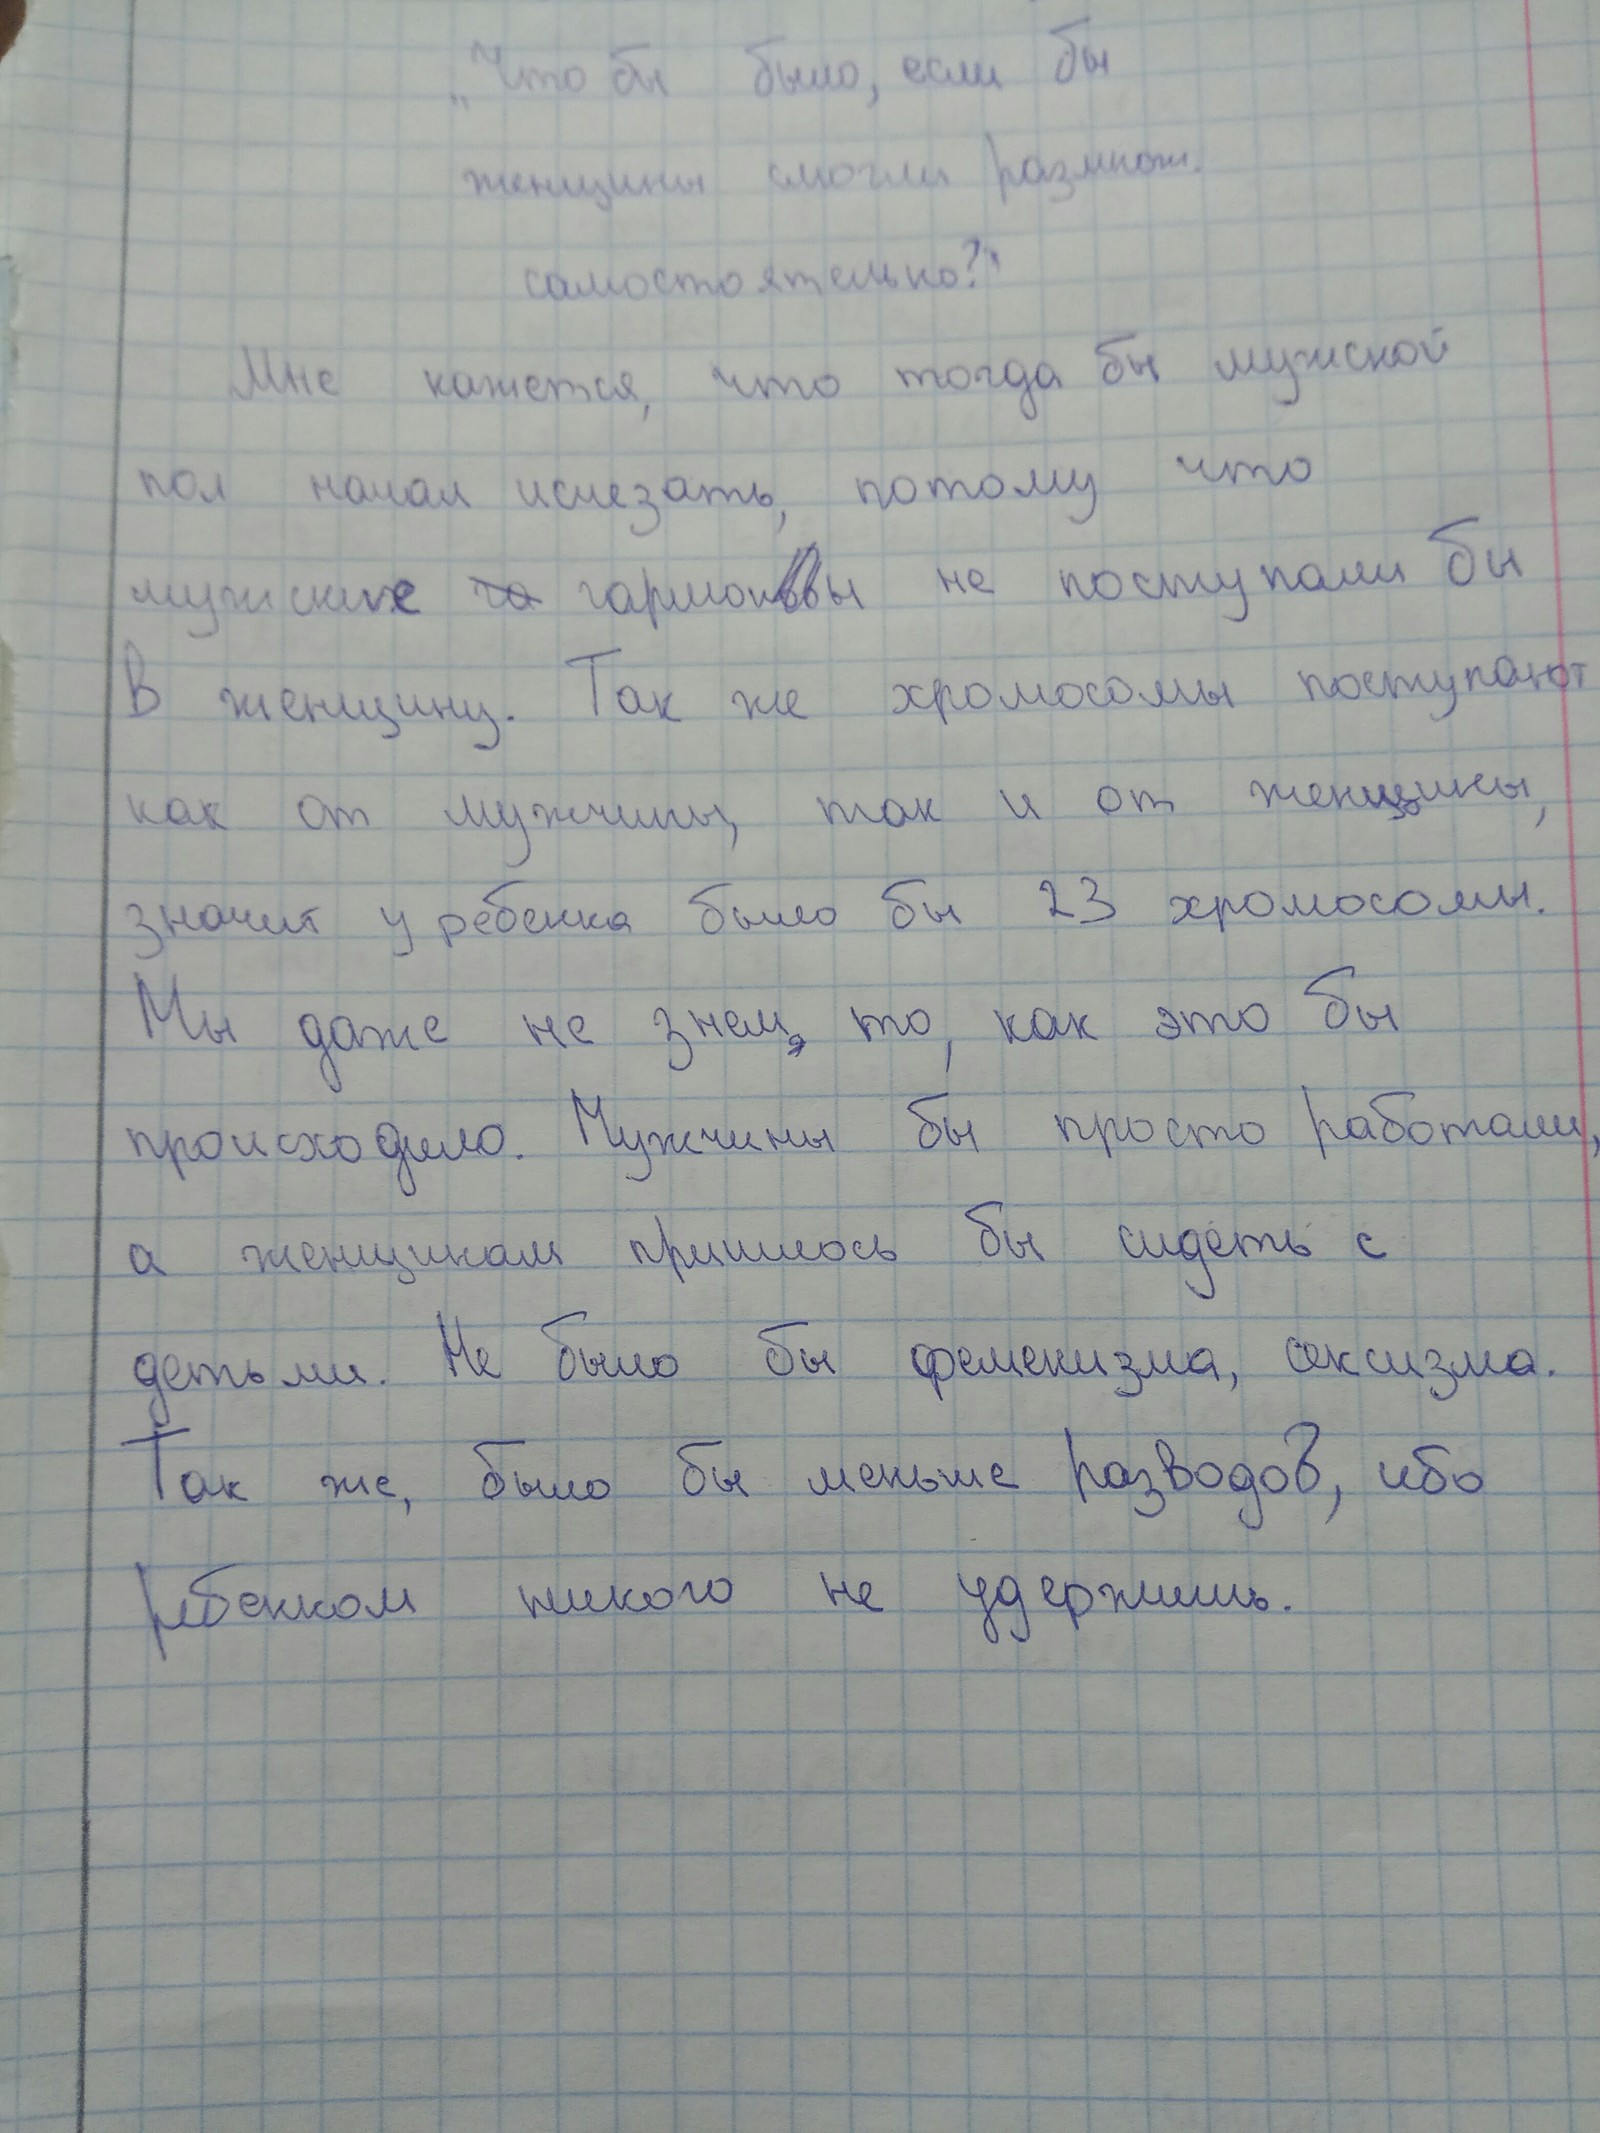 „Что бы было, если бы
женщины смогли размнож.
самостоятельно?"
Мне кажется, что тогда бы мужской
пол начал исчезать, потому что
мужские гармоны не поступали бы
в женщину. Так же хромосомы поступают
как от мужчины, так и от женщины,
значит у ребенка было бы 23 хромосомы.
Мы даже не знем, то, как это бы
происходило. Мужчины бы просто работали,
а женщинам пришлось бы сидеть с
детьми. Не было бы феменизма, сексизма.
Так же, было бы меньше разводов, ибо
ребенком никого не удержишь.